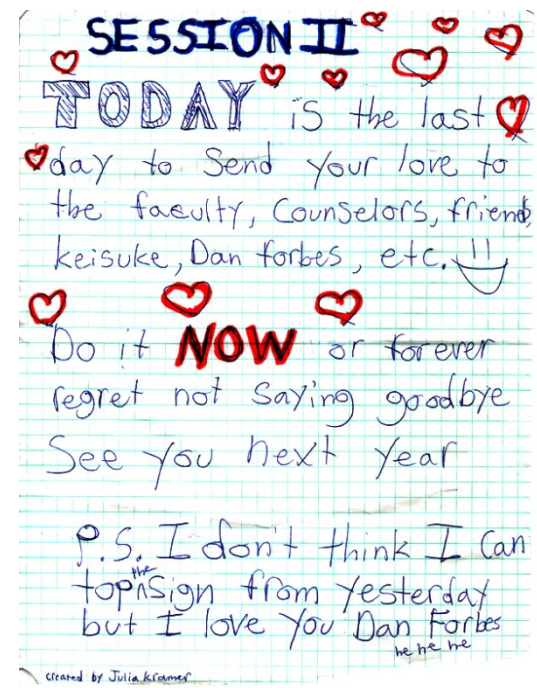 SESSION II
TODAY is the last
day to Send your love to
the faculty, Counselors, friends,
keisuke, Dan forbes, etc.
Do it NOW or forever
regret not saying goodbye
See you next year
P.S. I don't think I Can
top the sign from yesterday
but I love you Dan Forbes
he he he
created by Julia Kramer